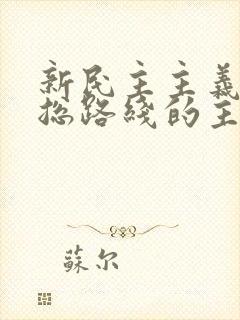 新民主主義
总路綫的主
蘇尔